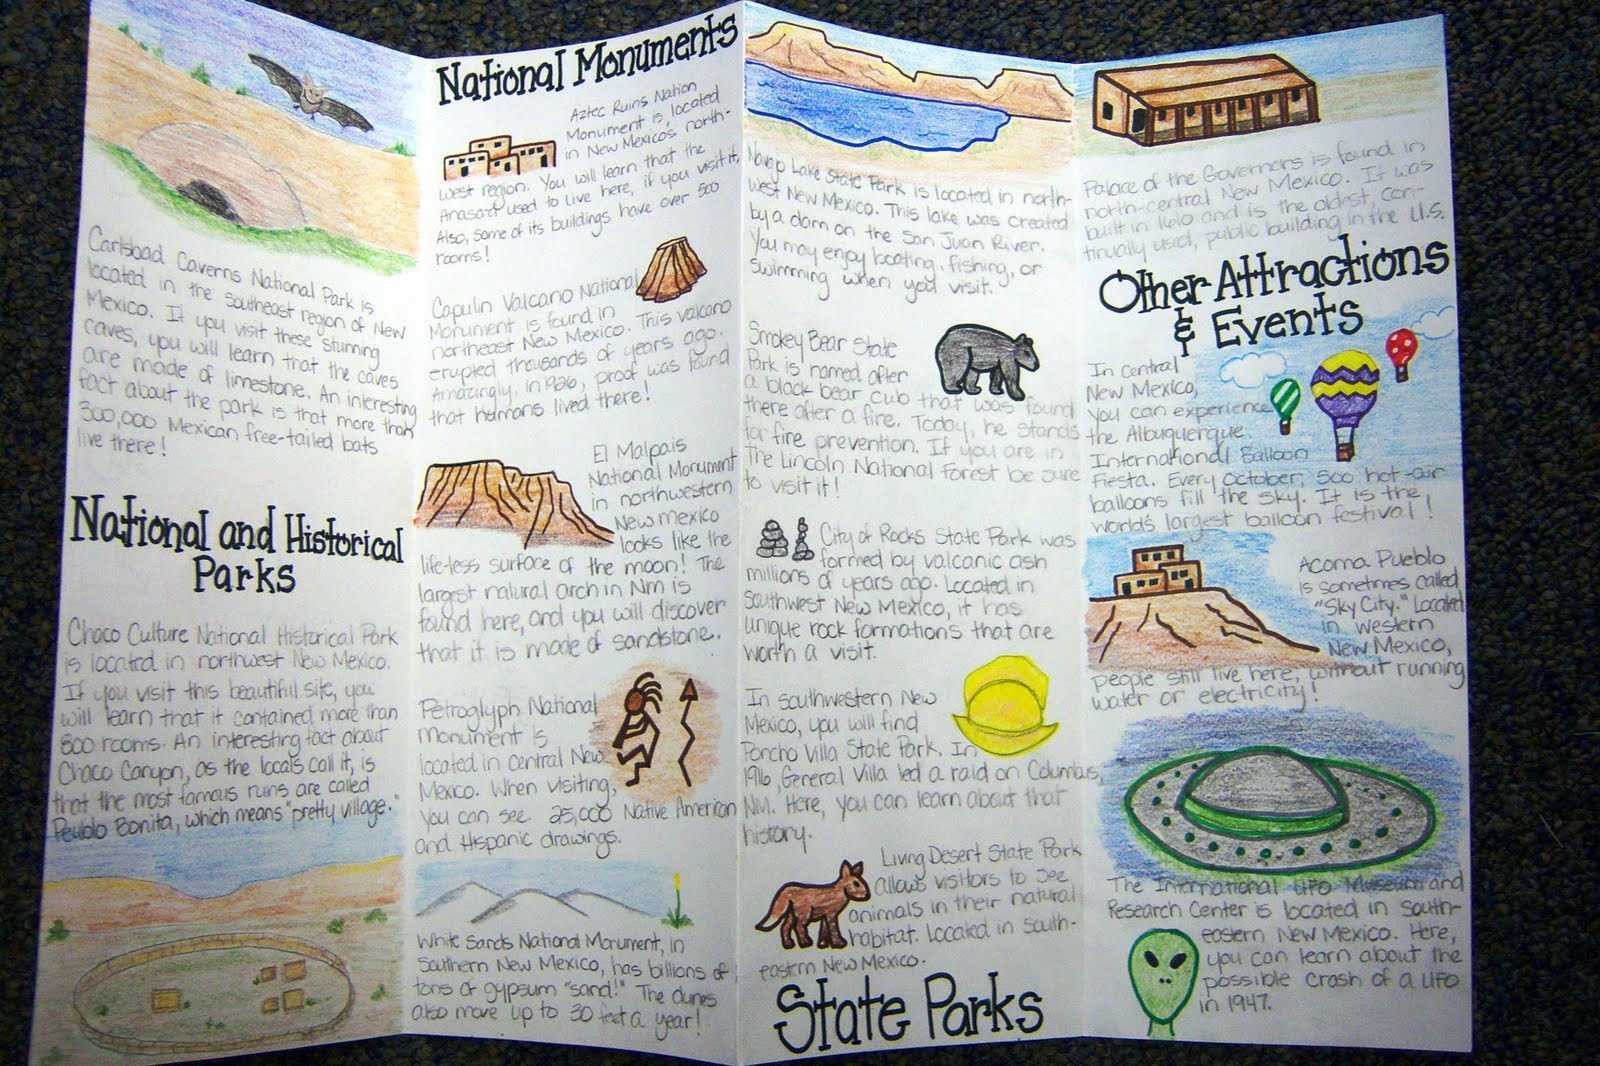 Carlsbad Caverns National Park is
located in the southeast region of New
Mexico. If you visit these stunning
caves, you will learn that the caves
are made of limestone. An interesting
fact about the park is that more than
300,000 Mexican free-tailed bats
live there!
National and Historical
Parks
Chaco Culture National Historical Park
is located in northwest New Mexico.
If you visit this beautiful site, you
will learn that it contained more than
800 rooms. An interesting fact about
Chaco Canyon, as the locals call it, is
that the most famous ruins are called
Peublo Bonita, which means "pretty village."
National Monuments
Aztec Ruins Nation
Monument is located
in New Mexico's north-
west region. You will learn that the
Anasazi used to live here, if you visit it.
Also, some of its buildings have over 500
rooms!
Capulin Valcano National
Monument is found in
northeast New Mexico. This valcano
erupted thousands of years ago.
Amazingly, in 1926, proof was found
that humans lived there!
El Malpais
National Monument
in northwestern
New Mexico
looks like the
life-less surface of the moon! The
largest natural arch in NM is
found here, and you will discover
that it is made of sandstone.
Petroglyph National
Monument is
located in central New
Mexico. When visiting,
you can see 25,000 Native American
and Hispanic drawings.
White Sands National Monument, in
Southern New Mexico, has billions of
tons of gypsum "sand!" The dunes
also move up to 30 feet a year!
Navajo Lake State Park is located in north-
west New Mexico. This lake was created
by a dam on the San Juan River.
You may enjoy boating, fishing, or
swimming when you visit.
Smokey Bear State
Park is named after
a black bear cub that was found
there after a fire. Today, he stands
for fire prevention. If you are in
The Lincoln National Forest be sure
to visit it!
City of Rocks State Park was
formed by valcanic ash
millions of years ago. Located in
Southwest New Mexico, it has
unique rock formations that are
worth a visit.
In southwestern New
Mexico, you will find
Poncho Villa State Park. In
1916, General Villa led a raid on Columbus,
NM. Here, you can learn about that
history.
Living Desert State Park
allows visitors to see
animals in their natural
habitat. Located in south-
eastern New Mexico.
State Parks
Palace of the Governors is found in
north-central New Mexico. It was
built in 1610 and is the oldest, con-
tinually used, public building in the U.S.
Other Attractions
& Events
In central
New Mexico,
you can experience
the Albuquerque
International Balloon
Fiesta. Every October, 500 hot-air
balloons fill the sky. It is the
world's largest balloon festival!
Acoma Pueblo
is sometimes called
"Sky City." Located
in western
New Mexico,
people still live here, without running
water or electricity!
The International UFO Museum and
Research Center is located in South-
eastern New Mexico. Here,
you can learn about the
possible crash of a UFO
in 1947.